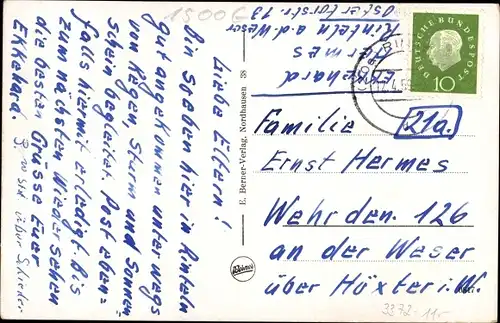 1500 G
Liebe Eltern!
Bin soeben hier in Rinteln
gut angekommen unterwegs
von Regen, Sturm und Sonnen-
schein begleitet. Post eben-
falls hiermit erledigt. Bis
zum nächsten Wiedersehen
die besten Grüsse Euer
Ekkehard.
über
E. Berner-Verlag, Nordhausen 38
Berner
Ekkehard
Hermes
Rinteln a.d. Weser
DEUTSCHE BUNDESPOST
10
RIN
Familie
21a.
Ernst Hermes
Wehrden. 126
an der Weser
über Höxter i.W.
3372 - 11.-